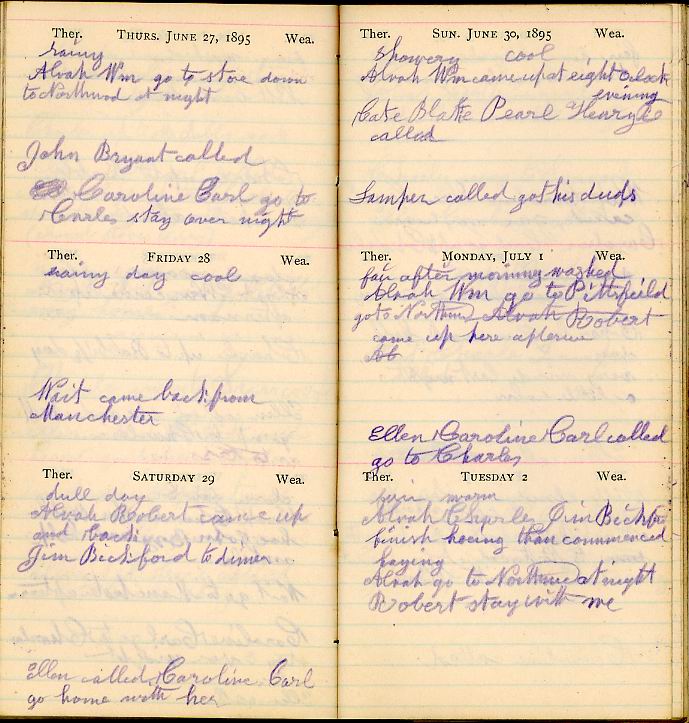 Ther. THURS. JUNE 27, 1895 Wea.
rainy
Alvah Wm go to store down
to Northwood at night
John Bryant called
Caroline Carl go to
Charles stay over night
Ther. FRIDAY 28 Wea.
rainy day cool
Nait came back from
Manchester
Ther. SATURDAY 29 Wea.
dull day
Alvah Robert came up
and back
Jim Bickford to dinner
Ellen called, Caroline Carl
go home with her
Ther. SUN. JUNE 30, 1895 Wea.
Showery cool
Alvah Wm came up at eight oclock
evening
Cate Blake Pearl Henry
called
Samper called got his duds
Ther. MONDAY, JULY 1 Wea.
fair after morning washed
Alvah Wm go to Pittsfield
go to Northwood Alvah Robert
came up here
Ellen Caroline Carl called
go to Charles
Ther. TUESDAY 2 Wea.
fair warm
Alvah Charles Jim
finish hoeing than commenced
haying
Alvah go to Northwood at night
Robert stay with me